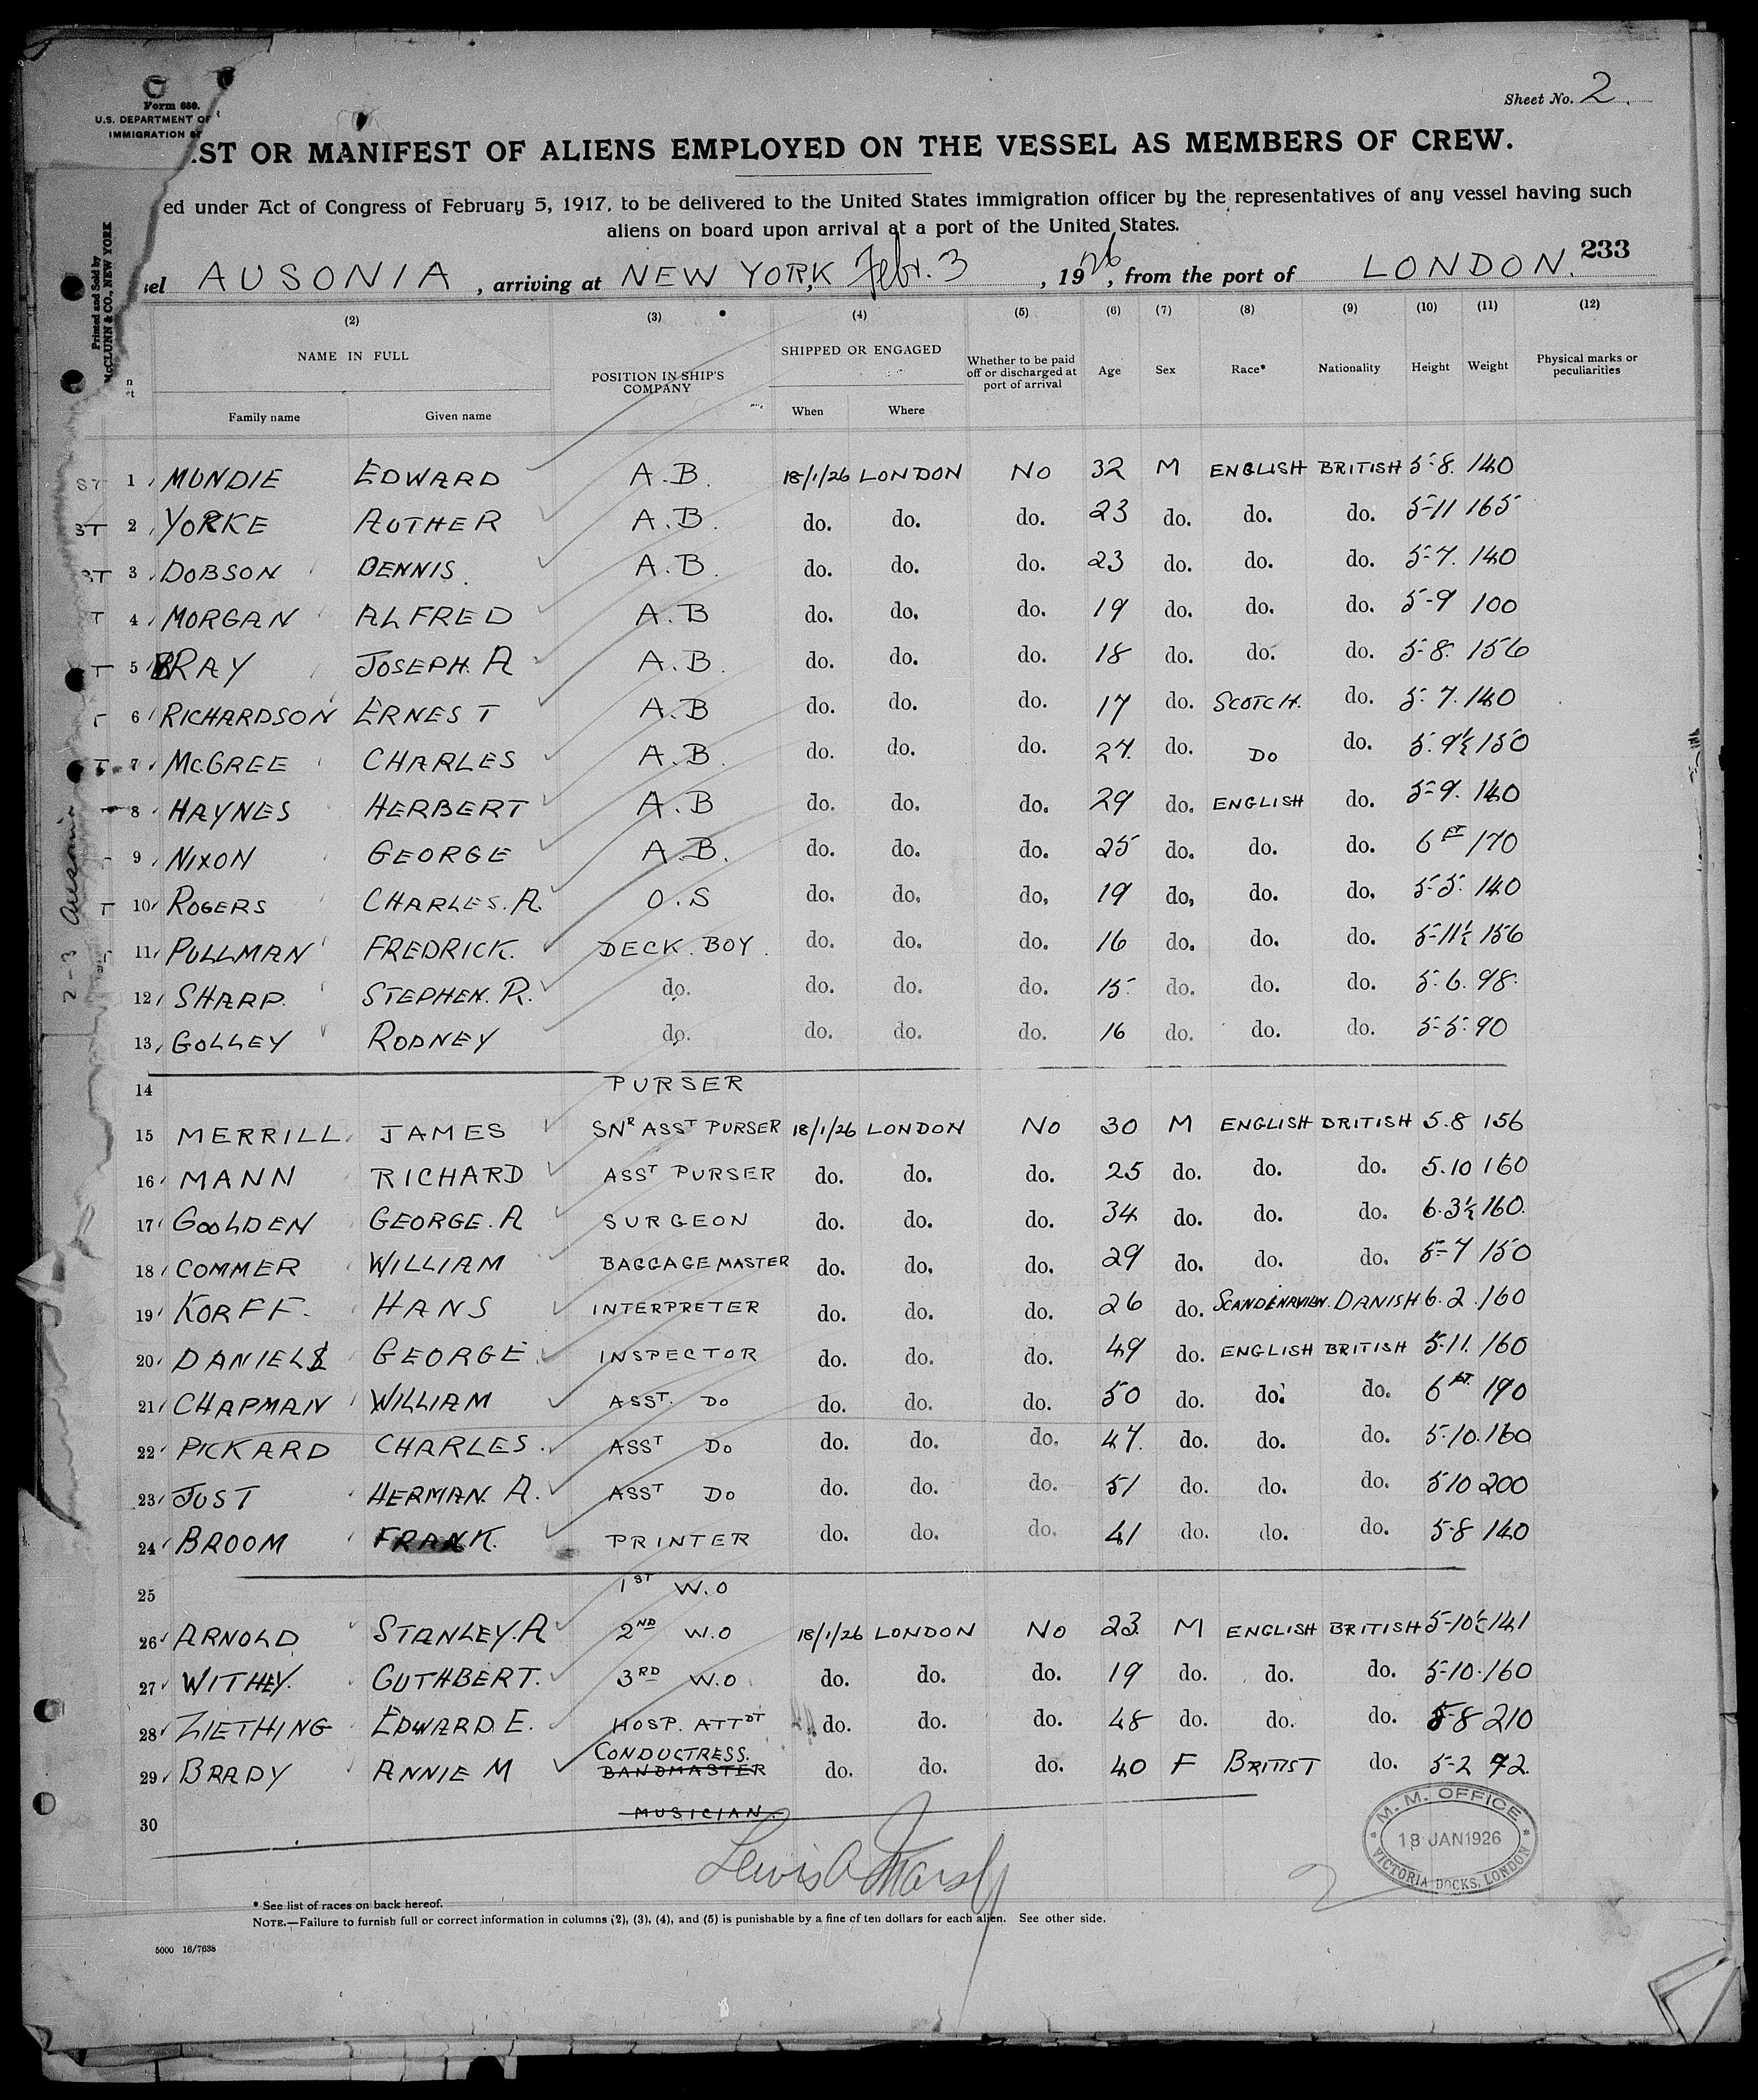 Form 680.
U.S. DEPARTMENT OF
IMMIGRATION
Sheet No. 2.
ST OR MANIFEST OF ALIENS EMPLOYED ON THE VESSEL AS MEMBERS OF CREW.
ed under Act of Congress of February 5, 1917, to be delivered to the United States immigration officer by the representatives of any vessel having such
aliens on board upon arrival at a port of the United States.
233
sel AUSONIA, arriving at NEW YORK, Febr. 3, 1926, from the port of LONDON.
Printed and Sold by
McCLUNN & CO., NEW YORK
(2) (3) (4) (5) (6) (7) (8) (9) (10) (11) (12)
NAME IN FULL POSITION IN SHIP'S COMPANY SHIPPED OR ENGAGED Whether to be paid off or discharged at port of arrival Age Sex Race* Nationality Height Weight Physical marks or peculiarities
Family name Given name When Where
ST 1 MUNDIE EDWARD A.B. 18/1/26 LONDON NO 32 M ENGLISH BRITISH 5-8. 140
ST 2 YORKE AUTHER A.B. do. do. do. 23 do. do. do. 5-11 165
ST 3 DOBSON DENNIS. A.B. do. do. do. 23 do. do. do. 5-7. 140
T 4 MORGAN ALFRED A.B do. do. do. 19 do. do. do. 5-9 100
T 5 BRAY JOSEPH. A A.B. do. do. do. 18 do. do. do. 5-8. 156
T 6 RICHARDSON ERNEST A.B do. do. do. 17 do. SCOTCH. do. 5-7. 140
T 7 McGREE CHARLES A.B. do. do. do. 27. do. DO do. 5.9½ 150
8 HAYNES HERBERT A.B do. do. do. 29 do. ENGLISH do. 5-9. 140
9 NIXON GEORGE A.B. do. do. do. 25 do. do. do. 6 FT 170
T 10 ROGERS CHARLES. A. O.S do. do. do. 19 do. do. do. 5-5. 140
11 PULLMAN FREDRICK. DECK. BOY. do. do. do. 16 do. do. do. 5-11½ 156
12 SHARP. STEPHEN. R. do. do. do. do. 15. do. do. do. 5-6. 98.
13 GOLLEY RODNEY do. do. do. do. 16 do. do. do. 5-5. 90
14 PURSER
15 MERRILL. JAMES SNR ASST PURSER 18/1/26 LONDON NO 30 M ENGLISH BRITISH 5.8 156
16 MANN RICHARD ASST PURSER do. do. do. 25 do. do. do. 5.10 160
17 GOOLDEN GEORGE. A SURGEON do. do. do. 34 do. do. do. 6.3½ 160.
18 COMMER WILLIAM BAGGAGE MASTER do. do. do. 29 do. do. do. 5-7 150
19 KORFF. HANS INTERPRETER do. do. do. 26 do. SCANDENAVIEN. DANISH 6.2. 160
20 DANIELS GEORGE. INSPECTOR do. do. do. 49 do. ENGLISH BRITISH 5-11. 160
21 CHAPMAN WILLIAM ASST. DO do. do. do. 50 do. do. do. 6 FT. 190
22 PICKARD CHARLES. ASST DO do. do. do. 47. do. do. do. 5-10. 160
23 JUST HERMAN. A. ASST DO do. do. do. 51 do. do. do. 5 10 200
24 BROOM FRANK. PRINTER do. do. do. 41 do. do. do. 5-8 140
25 1ST W.O
26 ARNOLD STANLEY. A 2ND W.O 18/1/26 LONDON NO 23. M ENGLISH BRITISH 5-10½ 141
27 WITHEY. CUTHBERT. 3RD W.O do. do. do. 19 do. do. do. 5-10. 160
28 ZIETHING EDWARD. E. HOSP. ATTDT do. do. do. 48 do. do. do. 5-8 210
CONDUCTRESS.
29 BRADY ANNIE M BANDMASTER do. do. do. 40 F BRITIST do. 5-2 92.
30 MUSICIAN.
2-3 Ausonia
M. M. OFFICE
18 JAN 1926
VICTORIA DOCKS, LONDON
* See list of races on back hereof.
NOTE.—Failure to furnish full or correct information in columns (2), (3), (4), and (5) is punishable by a fine of ten dollars for each alien. See other side.
5000 16/7638